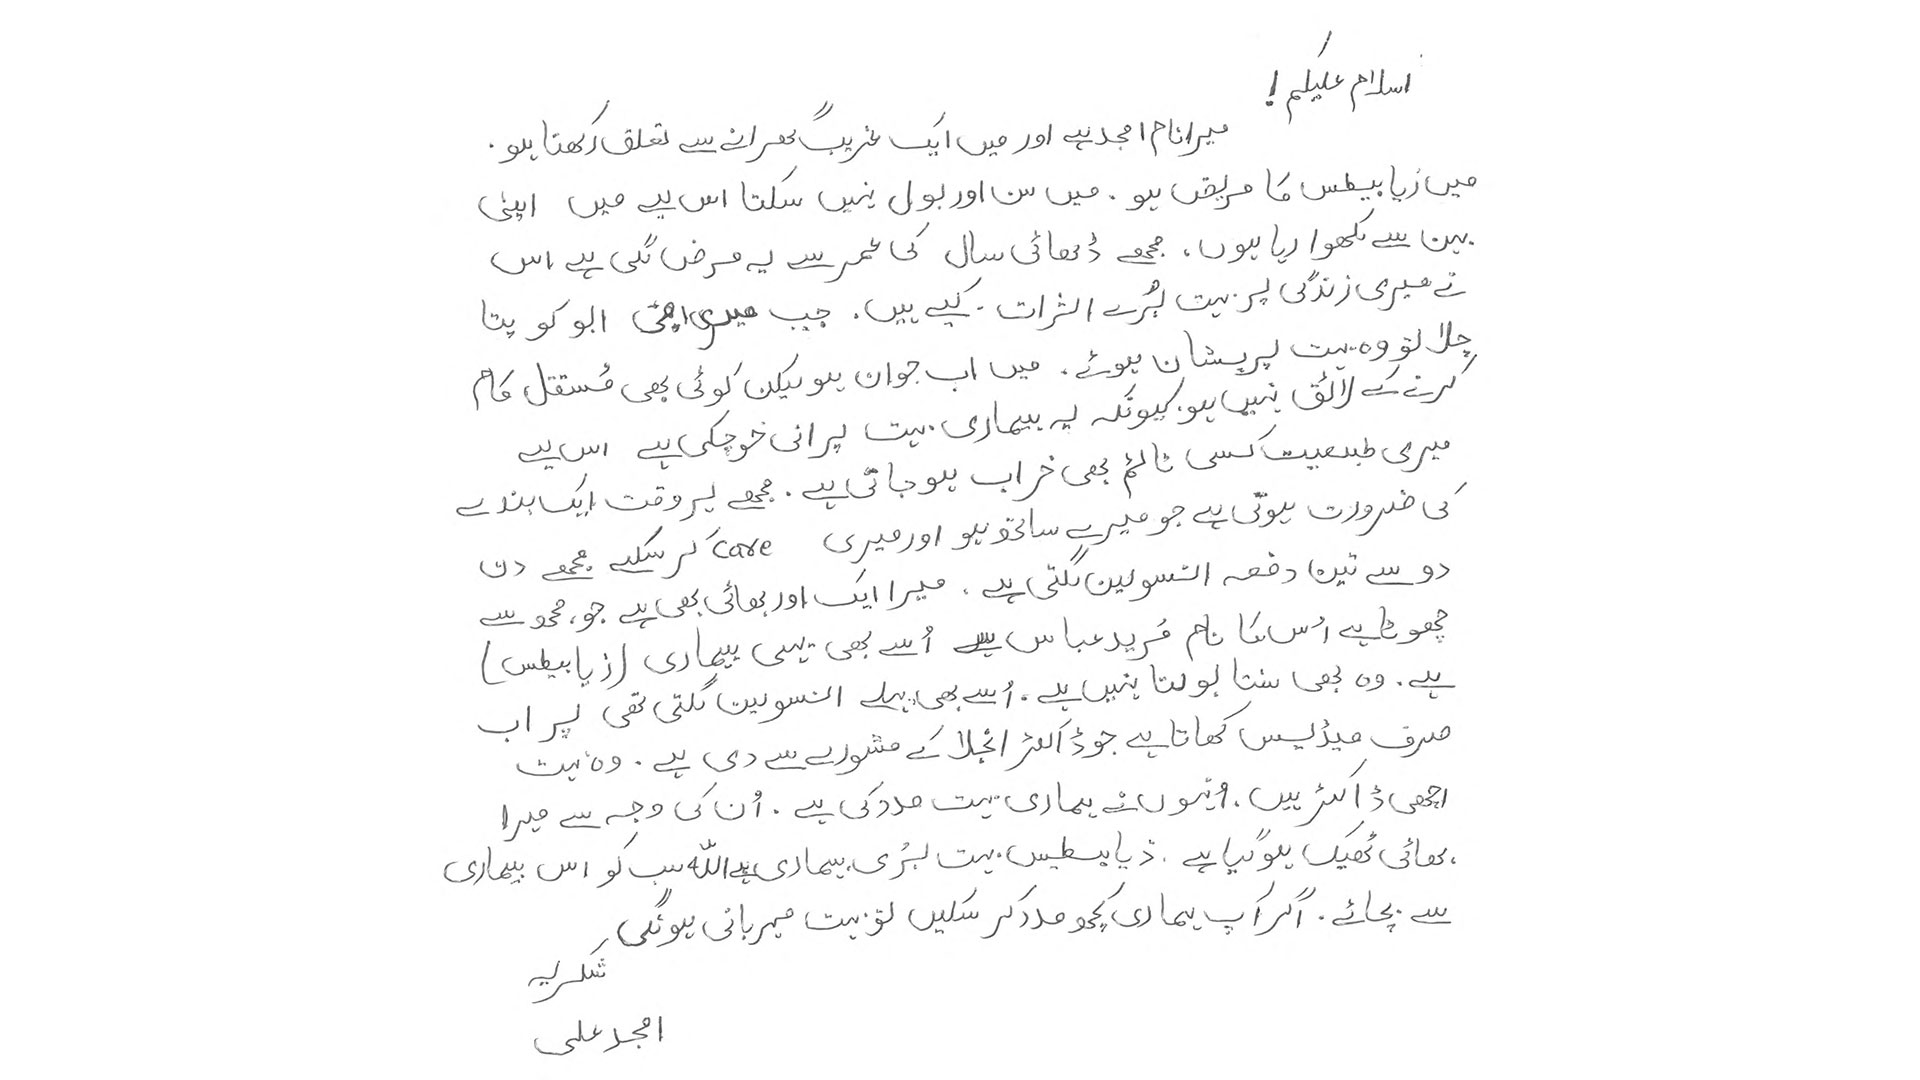 اسلام علیکم!
میرا نام امجد ہے اور میں ایک غریب گھرانے سے تعلق رکھتا ہو۔
میں زیابیطس کا مریض ہو۔ میں سن اور بول نہیں سکتا اس لیے میں اپنی
بہن سے لکھوا رہا ہوں۔ مجھے ڈھائی سال کی عمر سے یہ مرض لگی ہے اس
نے میری زندگی پر بہت بُرے اثرات کیے ہیں۔ جب میری امی ابو کو پتا
چلا تو وہ بہت پریشان ہوئے۔ میں اب جوان ہو لیکن کوئی بھی مُستقل کام
کرنے کے لائق نہیں ہو، کیونکہ یہ بیماری بہت پرانی ہوچکی ہے اس لیے
میری طبعیت کسی ٹائم بھی خراب ہو جاتی ہے۔ مجھے ہر وقت ایک بندے
کی ضرورت ہوتی ہے جو میرے ساتھ ہو اور میری care کر سکے مجھے دن
دو سے تین دفعہ انسولین لگتی ہے۔ میرا ایک اور بھائی بھی ہے جو مجھ سے
چھوٹا ہے اُس کا نام فرید عباس ہے اُسے بھی یہی بیماری (زیابیطس)
ہے۔ وہ بھی سنتا بولتا نہیں ہے۔ اُسے بھی پہلے انسولین لگتی تھی پر اب
صرف میڈیسن کھاتا ہے جو ڈاکٹر انجلا کے مشورے سے دی ہے۔ وہ بہت
اچھی ڈاکٹر ہیں، اُنہوں نے ہماری بہت مدد کی ہے۔ اُن کی وجہ سے میرا
بھائی ٹھیک ہوگیا ہے۔ ذیابیطیس بہت بُری بیماری ہے اللّٰہ سب کو اس بیماری
سے بچائے۔ اگر آپ ہماری کچھ مدد کر سکیں تو بہت مہربانی ہوگی
شکریہ
امجد علی